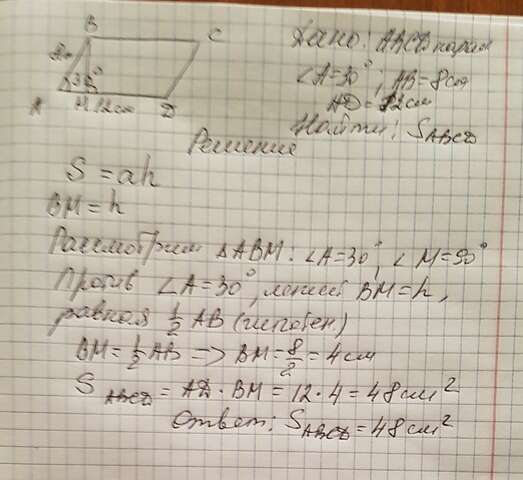 B
C
30°
A
M
12см
D
Дано: ABCD парал
∠A=30°; AB=8см
AD=12см
Найти: S ABCD
Решение
S=ah
BM=h
Рассмотрим ΔABM: ∠A=30°, ∠M=90°
Против ∠A=30°, лежит BM=h,
равная 1/2 AB (гипотен)
BM=1/2 AB => BM=8/2=4см
S ABCD = AD·BM=12·4=48см²
Ответ: S ABCD=48см²